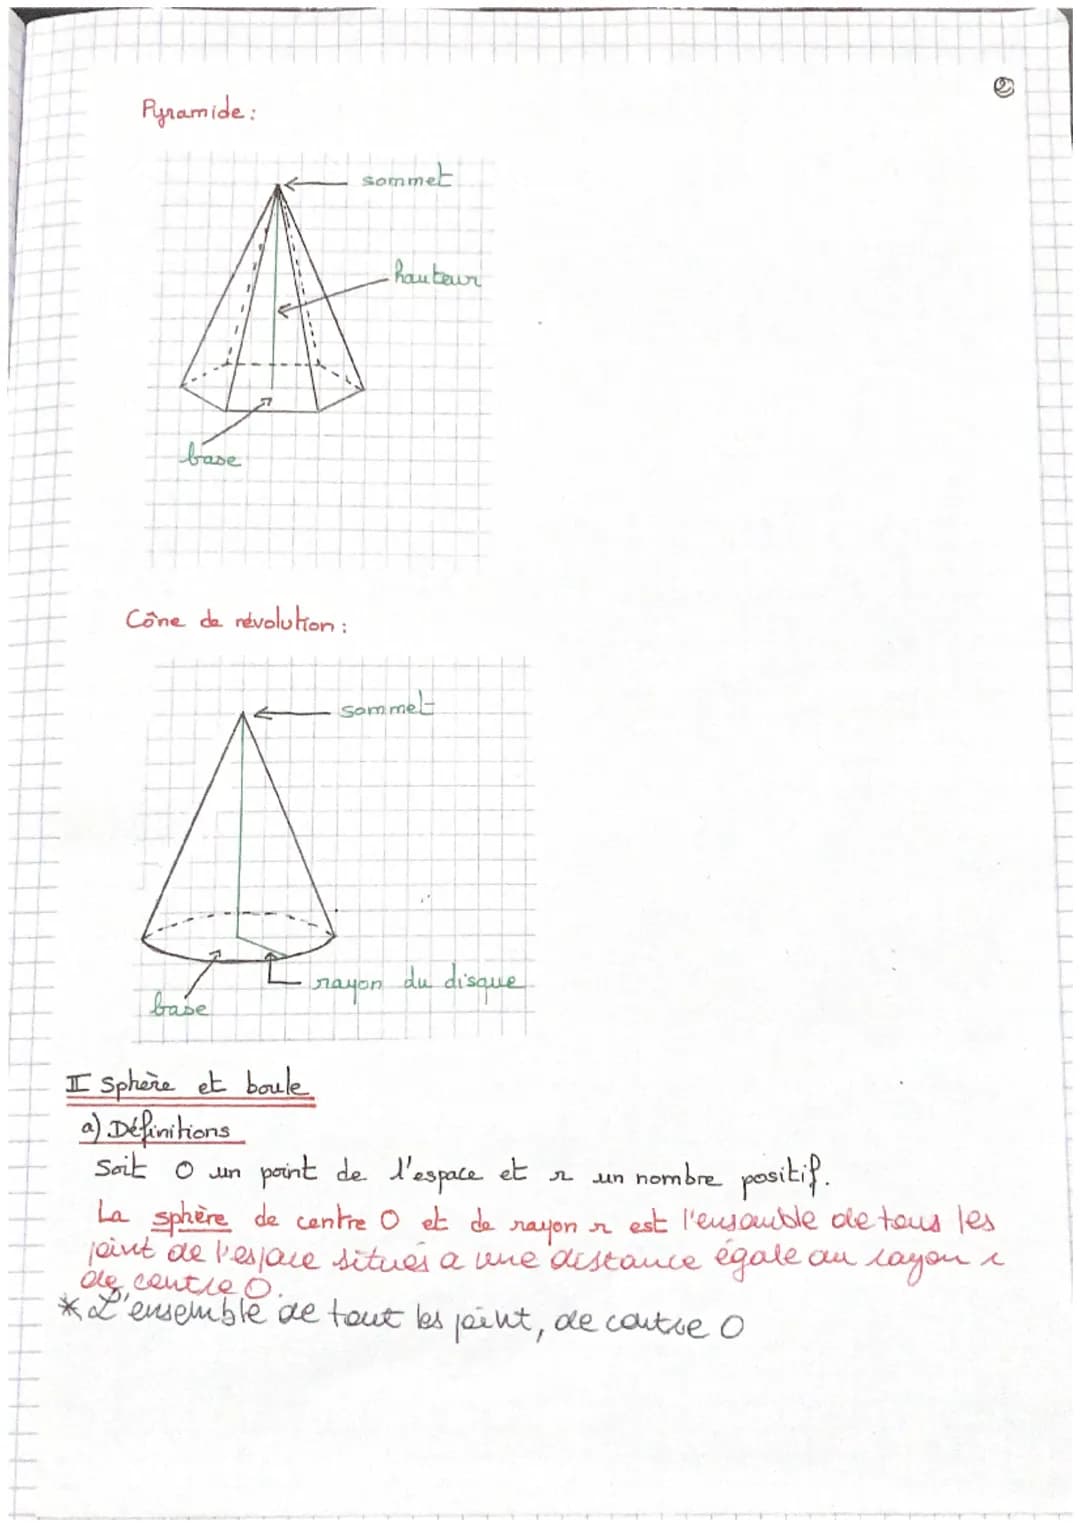 ②
Pyramide :
sommet
hauteur
base
Cône de révolution :
sommet
rayon du disque
base
II Sphère et boule
a) Définitions
Soit O un point de l'espace et r un nombre positif.
La sphère de centre O et de rayon r est l'ensemble de tous les
point de l'espace situés a une distance égale au rayon r
de centre O.
* L'ensemble de tout les point, de centre O